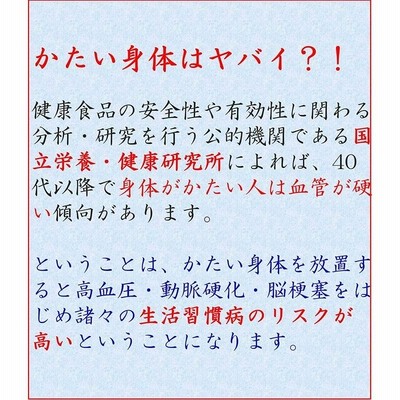 かたい身体はヤバイ？！
健康食品の安全性や有効性に関わる
分析・研究を行う公的機関である国
立栄養・健康研究所によれば、40
代以降で身体がかたい人は血管が硬
い傾向があります。
ということは、かたい身体を放置す
ると高血圧・動脈硬化・脳梗塞をは
じめ諸々の生活習慣病のリスクが
高いということになります。